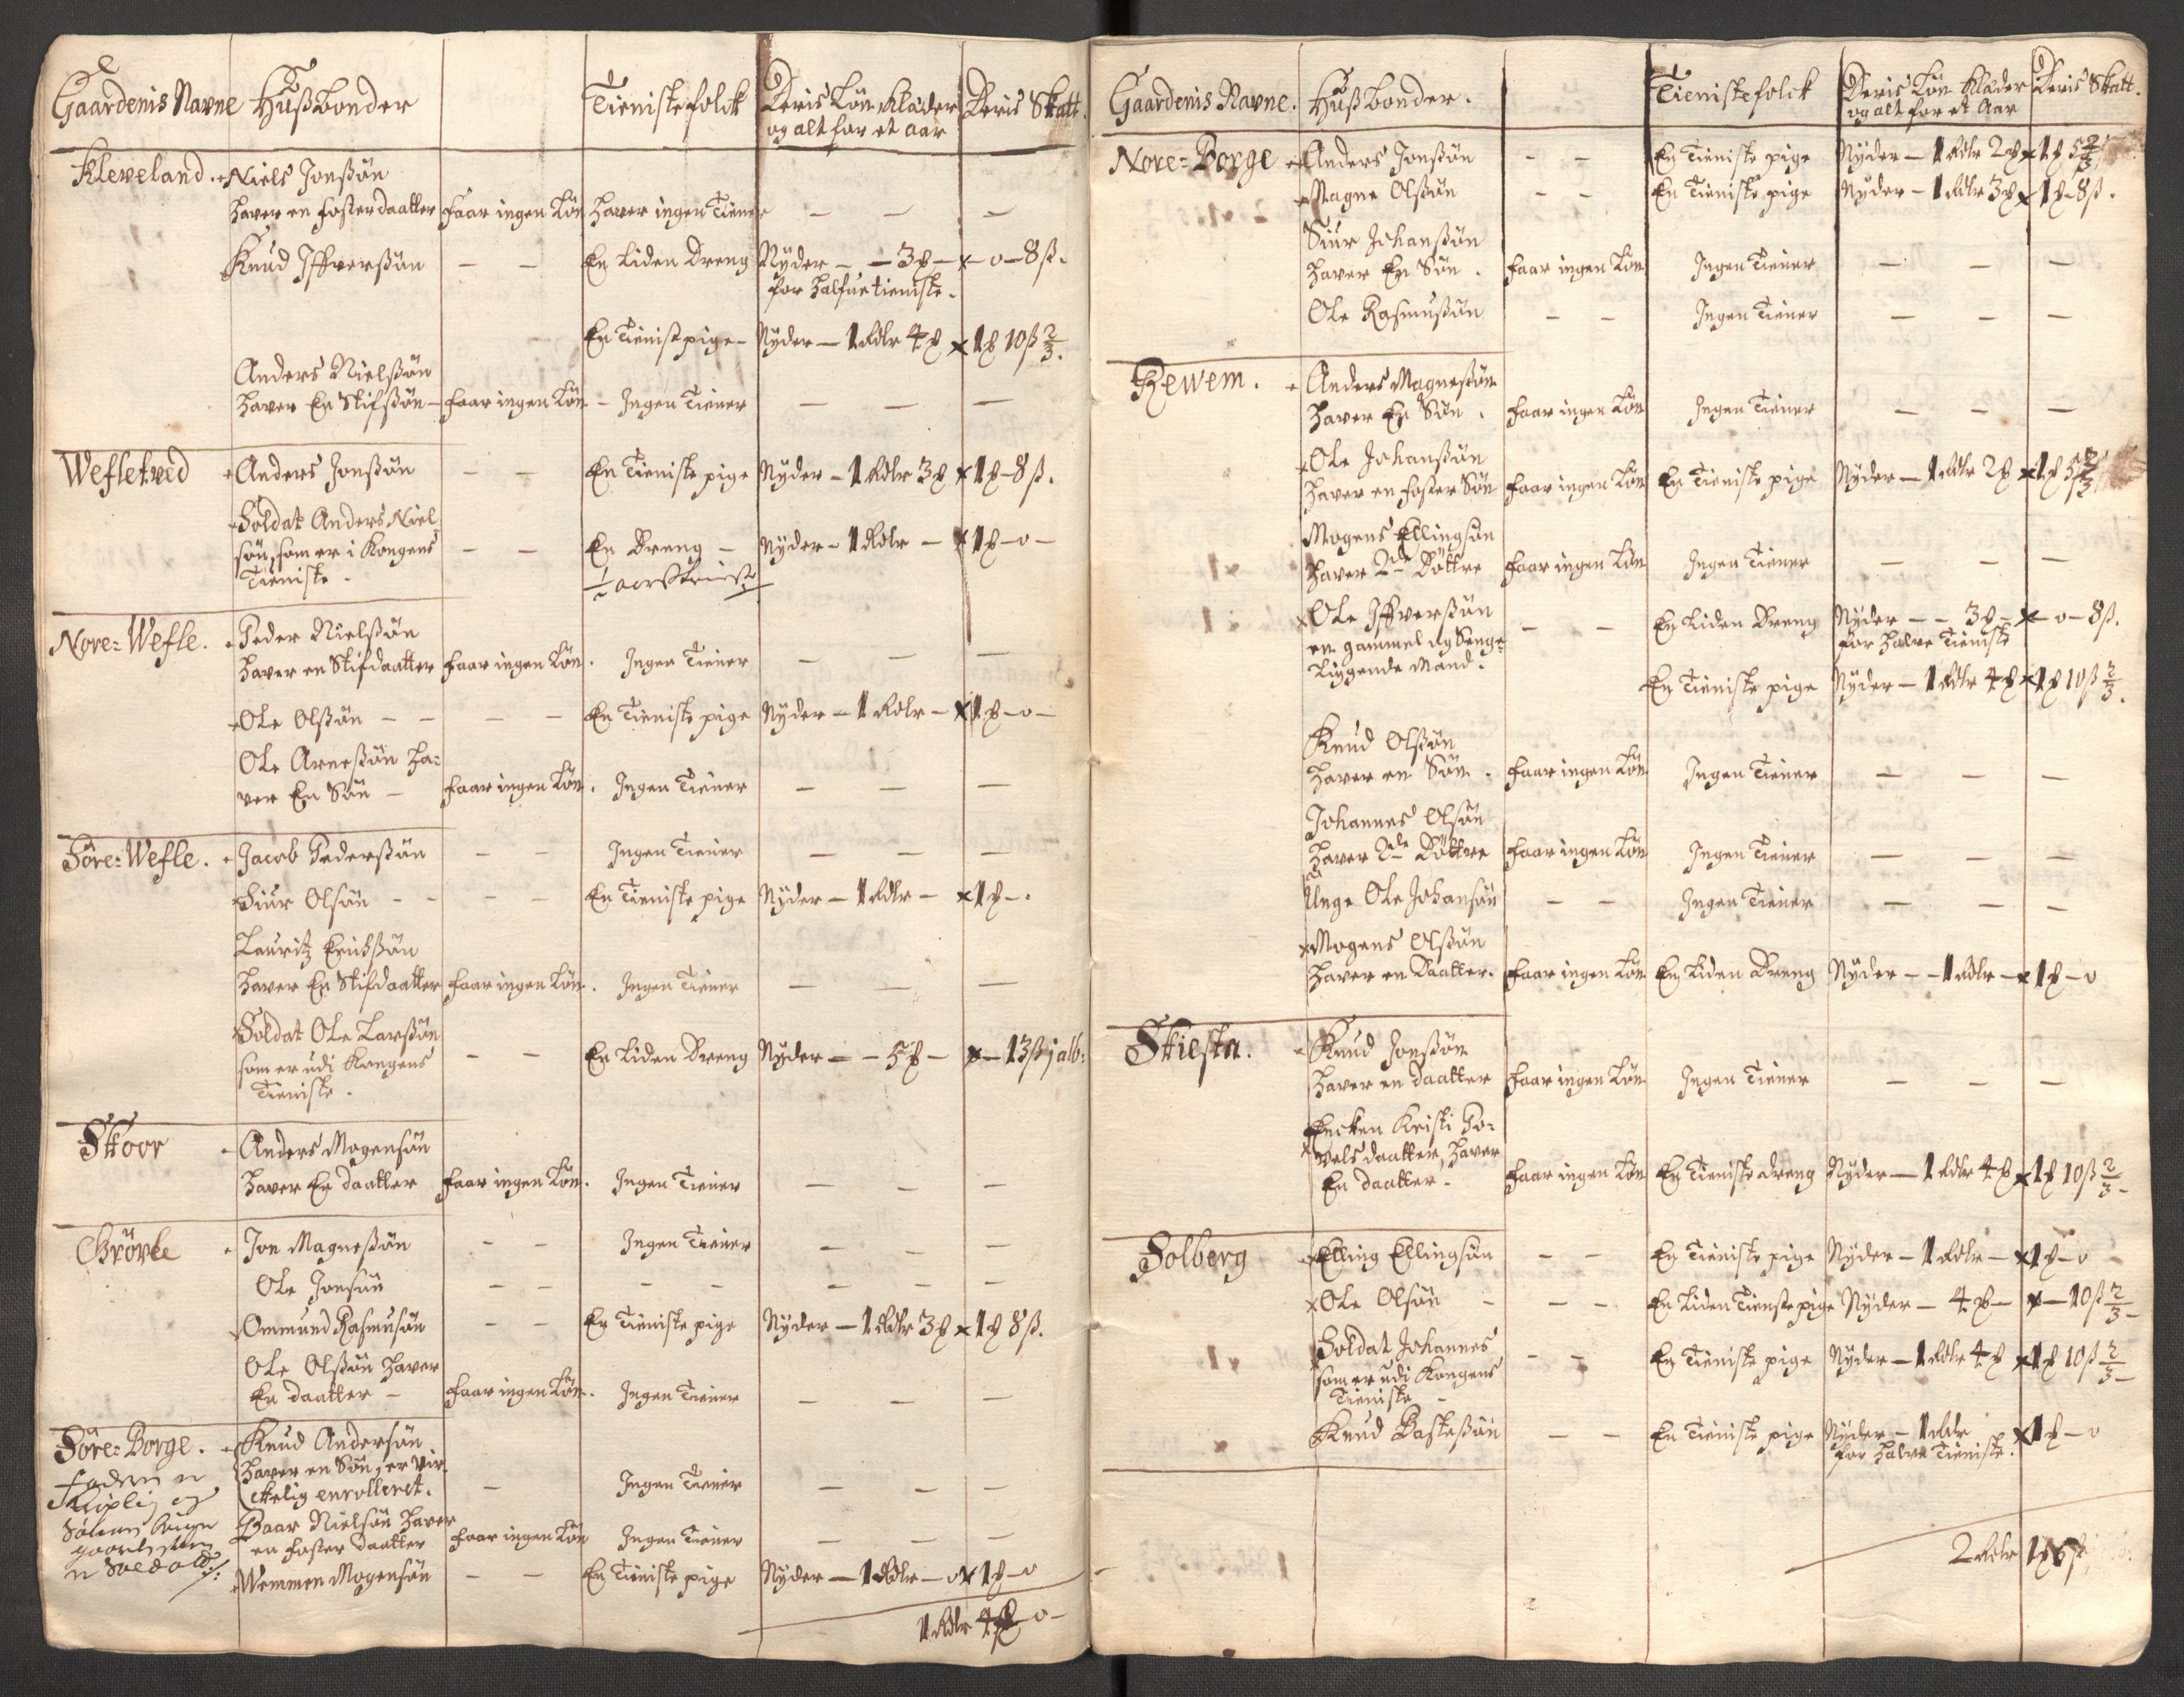 Gaardenis Navne Hußbonder Tienistefolck Deris Løn Klæder Deris Skatt.
og alt for et Aar
Kleveland. Niels Jonßøn
haver en fosterdaatter faar ingen Løn haver ingen Tiener — — —
Knud Iffverßøn — — En Liden Dreng Nyder — — 3 — x — o — 8 ß.
for halfue tieniste.
En Tienist pige — Nyder — 1 Rdlr 4 x 1 10 ß 2/3.
Anders Nielßøn
haver En Stifsøn — faar ingen Løn — Ingen Tiener — — —
Wefletved Anders Jonßøn — — En Tieniste pige Nyder — 1 Rdlr 3 x 1 — 8 ß.
Soldat Anders Niel
søn, som er i Kongens — — En Dreng — Nyder — 1 Rdlr — x 1 — o —
Tieniste.
Nore= Wefle. Peder Nielßøn
haver en Stifdaatter faar ingen Løn. Ingen Tiener — — —
Ole Olßøn — — — — En Tieniste pige Nyder — 1 Rdlr — x 1 — o —
Ole Arneßøn ha=
ver En Søn — faar ingen Løn. Ingen Tiener — — —
Søre= Wefle. Jacob Pederßøn — — Ingen Tiener — — —
Siur Olsøn — — — — En Tieniste pige Nyder — 1 Rdlr — x 1 — .
Lauritz Erichßøn
haver En Stifdaatter faar ingen Løn. Ingen Tiener — — —
Soldat Ole Larßøn
som er udi Kongens — — En Liden Dreng Nyder — — 5 — x — 13 ß j alb:
Tieniste.
Skoor Anders Mogensøn
haver En daatter faar ingen Løn. Ingen Tiener — — —
Grövle Jon Magneßøn — — Ingen Tiener — — —
Ole Jonsøn — — — — — — —
Ommund Rasmusøn — — En Tieniste pige Nyder — 1 Rdlr 3 x 1 8 ß.
Ole Olßøn haver
En daatter — faar ingen Løn. Ingen Tiener — — —
Søre= Borge. Knud Andersøn
haver en Søn, er vir
ckelig enrolleret. — Ingen Tiener — — —
Baar Nielsøn haver
en foster daatter faar ingen Løn Ingen Tiener — — —
Wemmen Mogensøn — — En Tieniste pige Nyder — 1 Rdlr — o x 1 — o
1 Rdlr 4 — o —
Gaardenis Navne. Hußbonder. Tienistefolck Deris Løn Klæder Deris Skatt.
og alt for et Aar
Nore= Borge Anders Jonßøn — — En Tieniste pige Nyder — 1 Rdlr 2 x 1 5 2/3
Magne Olßøn — — En Tieniste pige Nyder — 1 Rdlr 3 x 1 — 8 ß.
Siur Johanßøn
haver En Søn. faar ingen Løn Ingen Tiener — — —
Ole Rasmusøn — — Ingen Tiener — — —
Rewem. Anders Magneßøn
haver En Søn. faar ingen Løn Ingen Tiener — — —
Ole Johanßøn
haver en foster Søn faar ingen Løn En Tieniste pige Nyder — 1 Rdlr 2 x 1 5 2/3
Mogens Ellingsøn
haver 2de Döttre faar ingen Løn Ingen Tiener — — —
x Ole Iffverßøn — — En Liden Dreng Nyder — — 3 — x — o — 8 ß.
en gammel og Senge= for halve Tieniste
liggende Mand.
En Tieniste pige Nyder — 1 Rdlr 4 x 1 10 ß 2/3.
Knud Olßøn
haver en Søn. faar ingen Løn Ingen Tiener — — —
Johannes Olsøn
haver 2de Döttre faar ingen Løn Ingen Tiener — — —
Unge Ole Johansøn — — Ingen Tiener — — —
x Mogens Olßøn
haver en Daatter. faar ingen Løn En Liden Dreng Nyder — — 1 Rdlr — x 1 — o
Skiesta. Knud Jonßøn
haver en daatter faar ingen Løn Ingen Tiener — — —
Encken Kristi Po=
velsdaatter, haver
En daatter. faar ingen Løn En Tieniste dreng Nyder — 1 Rdlr 4 x 1 10 ß 2/3 —
Solberg Elling Ellingsøn — — En Tieniste pige Nyder — 1 Rdlr — x 1 — o
x Ole Olsøn — — — En Liden Tieniste pige Nyder — 4 — x — 10 ß 2/3 —
Soldat Johannes — — En Tieniste pige Nyder — 1 Rdlr 4 x 1 10 ß 2/3 —
som er udi Kongens
Tieniste —
Knud Basteßøn — — En Tieniste pige Nyder — 1 Rdlr x 1 — o
for halve Tieniste.
2 Rdlr